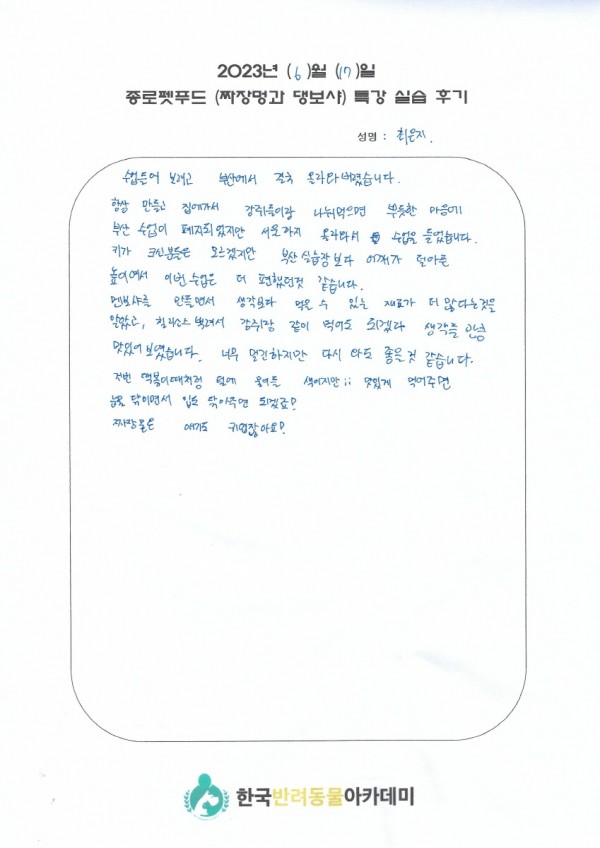 2023년 (6)월 (17)일
종로펫푸드 (짜장멍과 댕보샤) 특강 실습 후기
성명 : 최은지.
수업들어 보려고 부산에서 결국 올라와버렸습니다.
항상 만들고 집에가서 강쥐들이랑 나눠먹으면 뿌듯한 마음에
부산 수업이 폐지되었지만 서울까지 올라와서 수업을 들었습니다.
키가 크신분들은 모르겠지만 부산 실습장보다 어깨가 덜아픈
높이여서 이번 수업은 더 편했던것 같습니다.
멘보샤를 만들면서 생각보다 먹을 수 있는 재료가 더 많다는것을
알았고, 칠리소스 뿌려서 강쥐랑 같이 먹어도 되겠다 생각들 만큼
맛있어 보였습니다. 너무 멀긴하지만 다시 와도 좋을것 같습니다.
저번 떡볶이때처럼 털에 물어든 색이지만;; 맛있게 먹어주면
눈물 닦이면서 입도 닦아주면 되겠죠?
짜장물은 애기도 귀엽잖아요?
한국반려동물아카데미